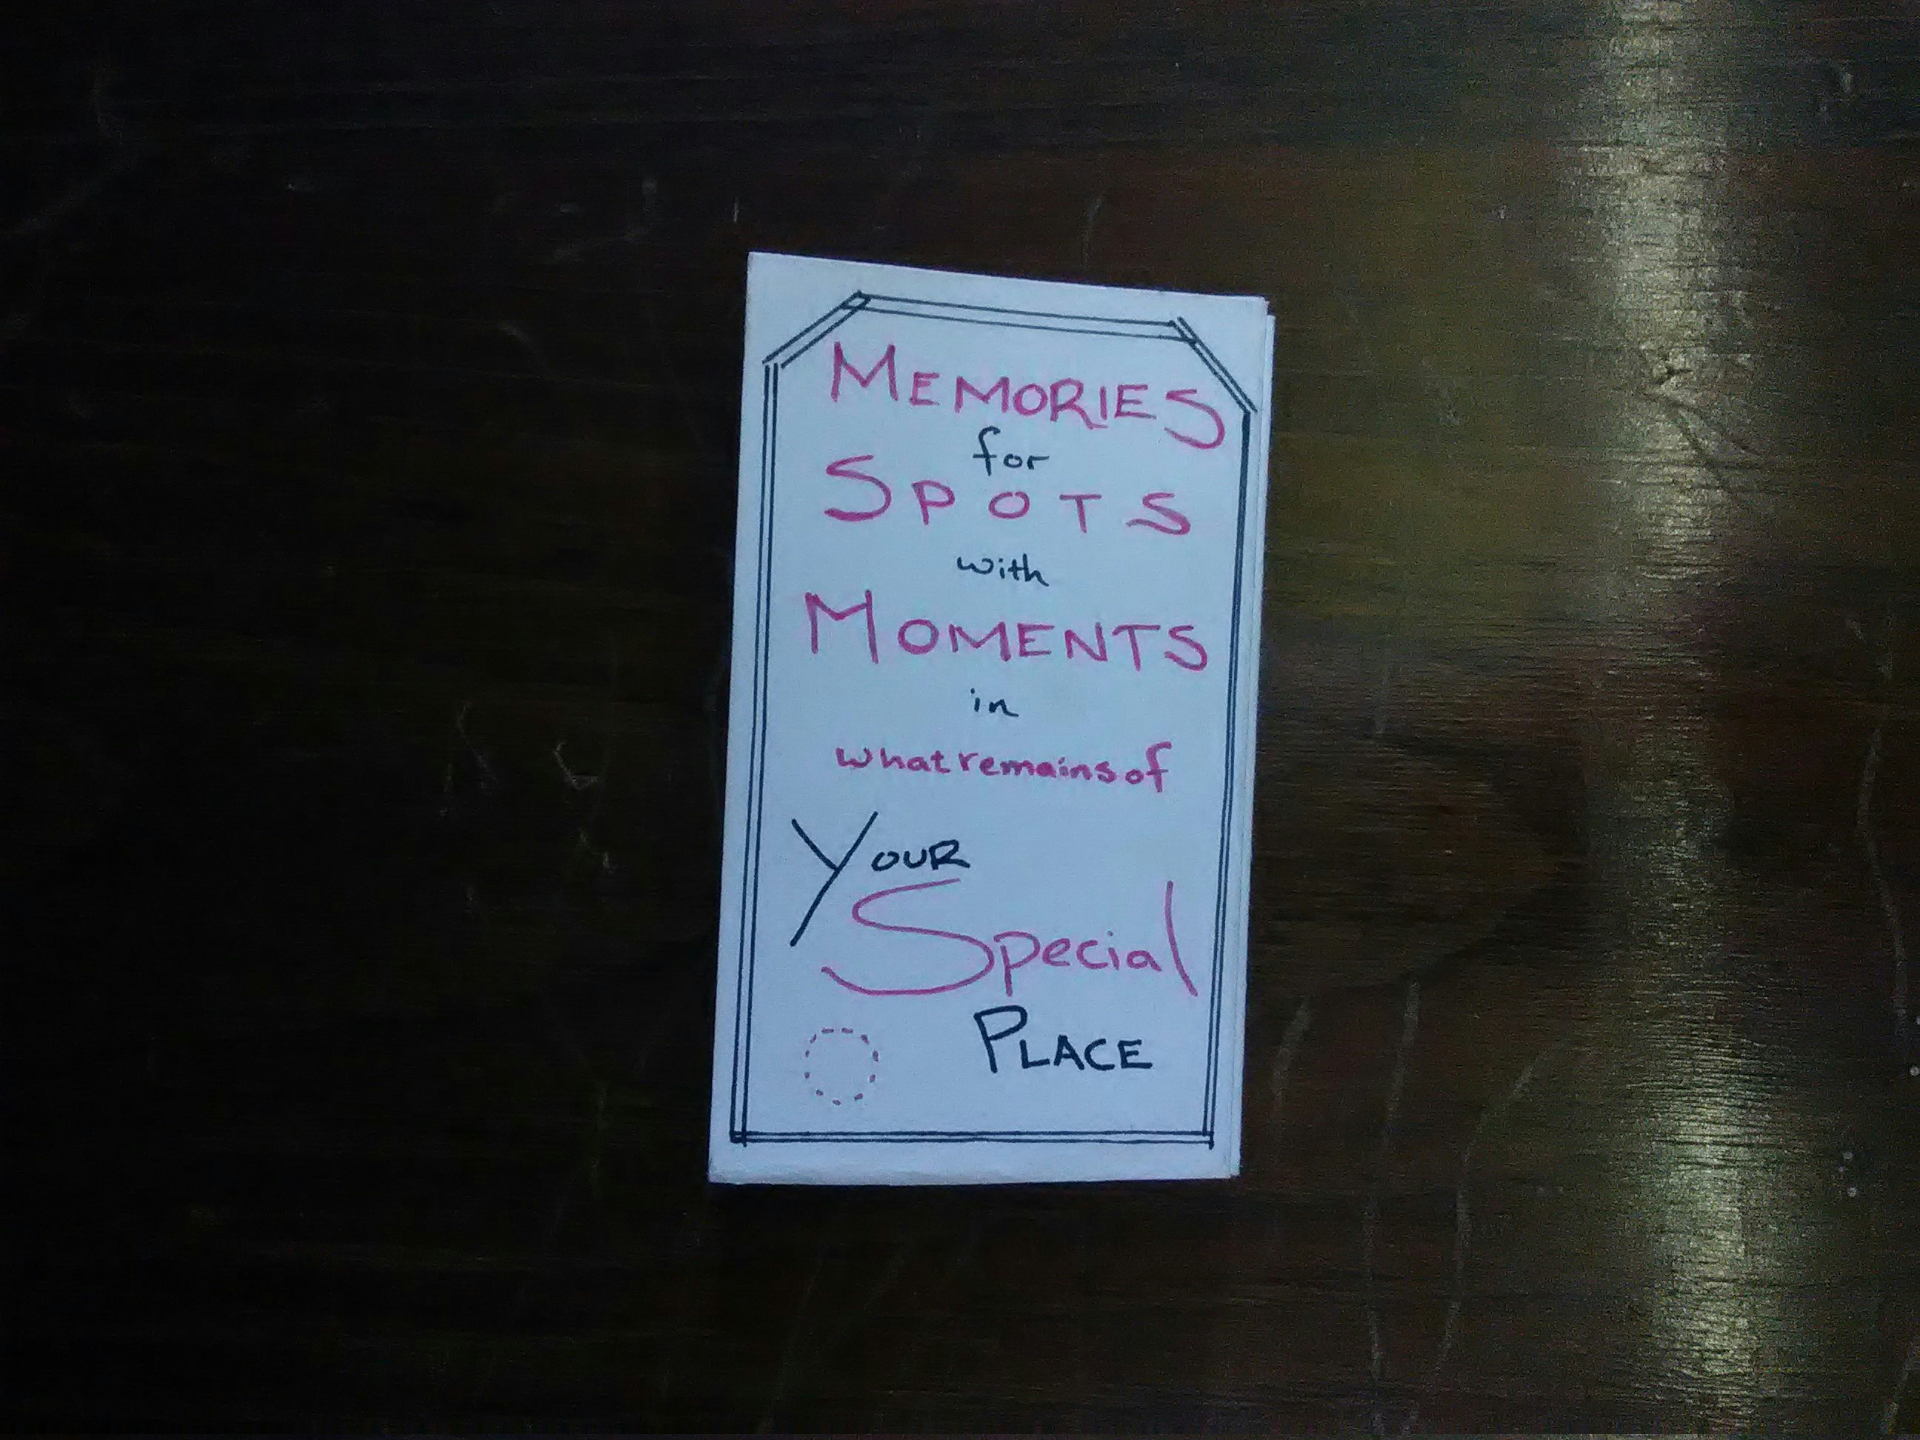 MEMORIES
for
SPOTS
with
MOMENTS
in
what remains of
YOUR
Special
PLACE